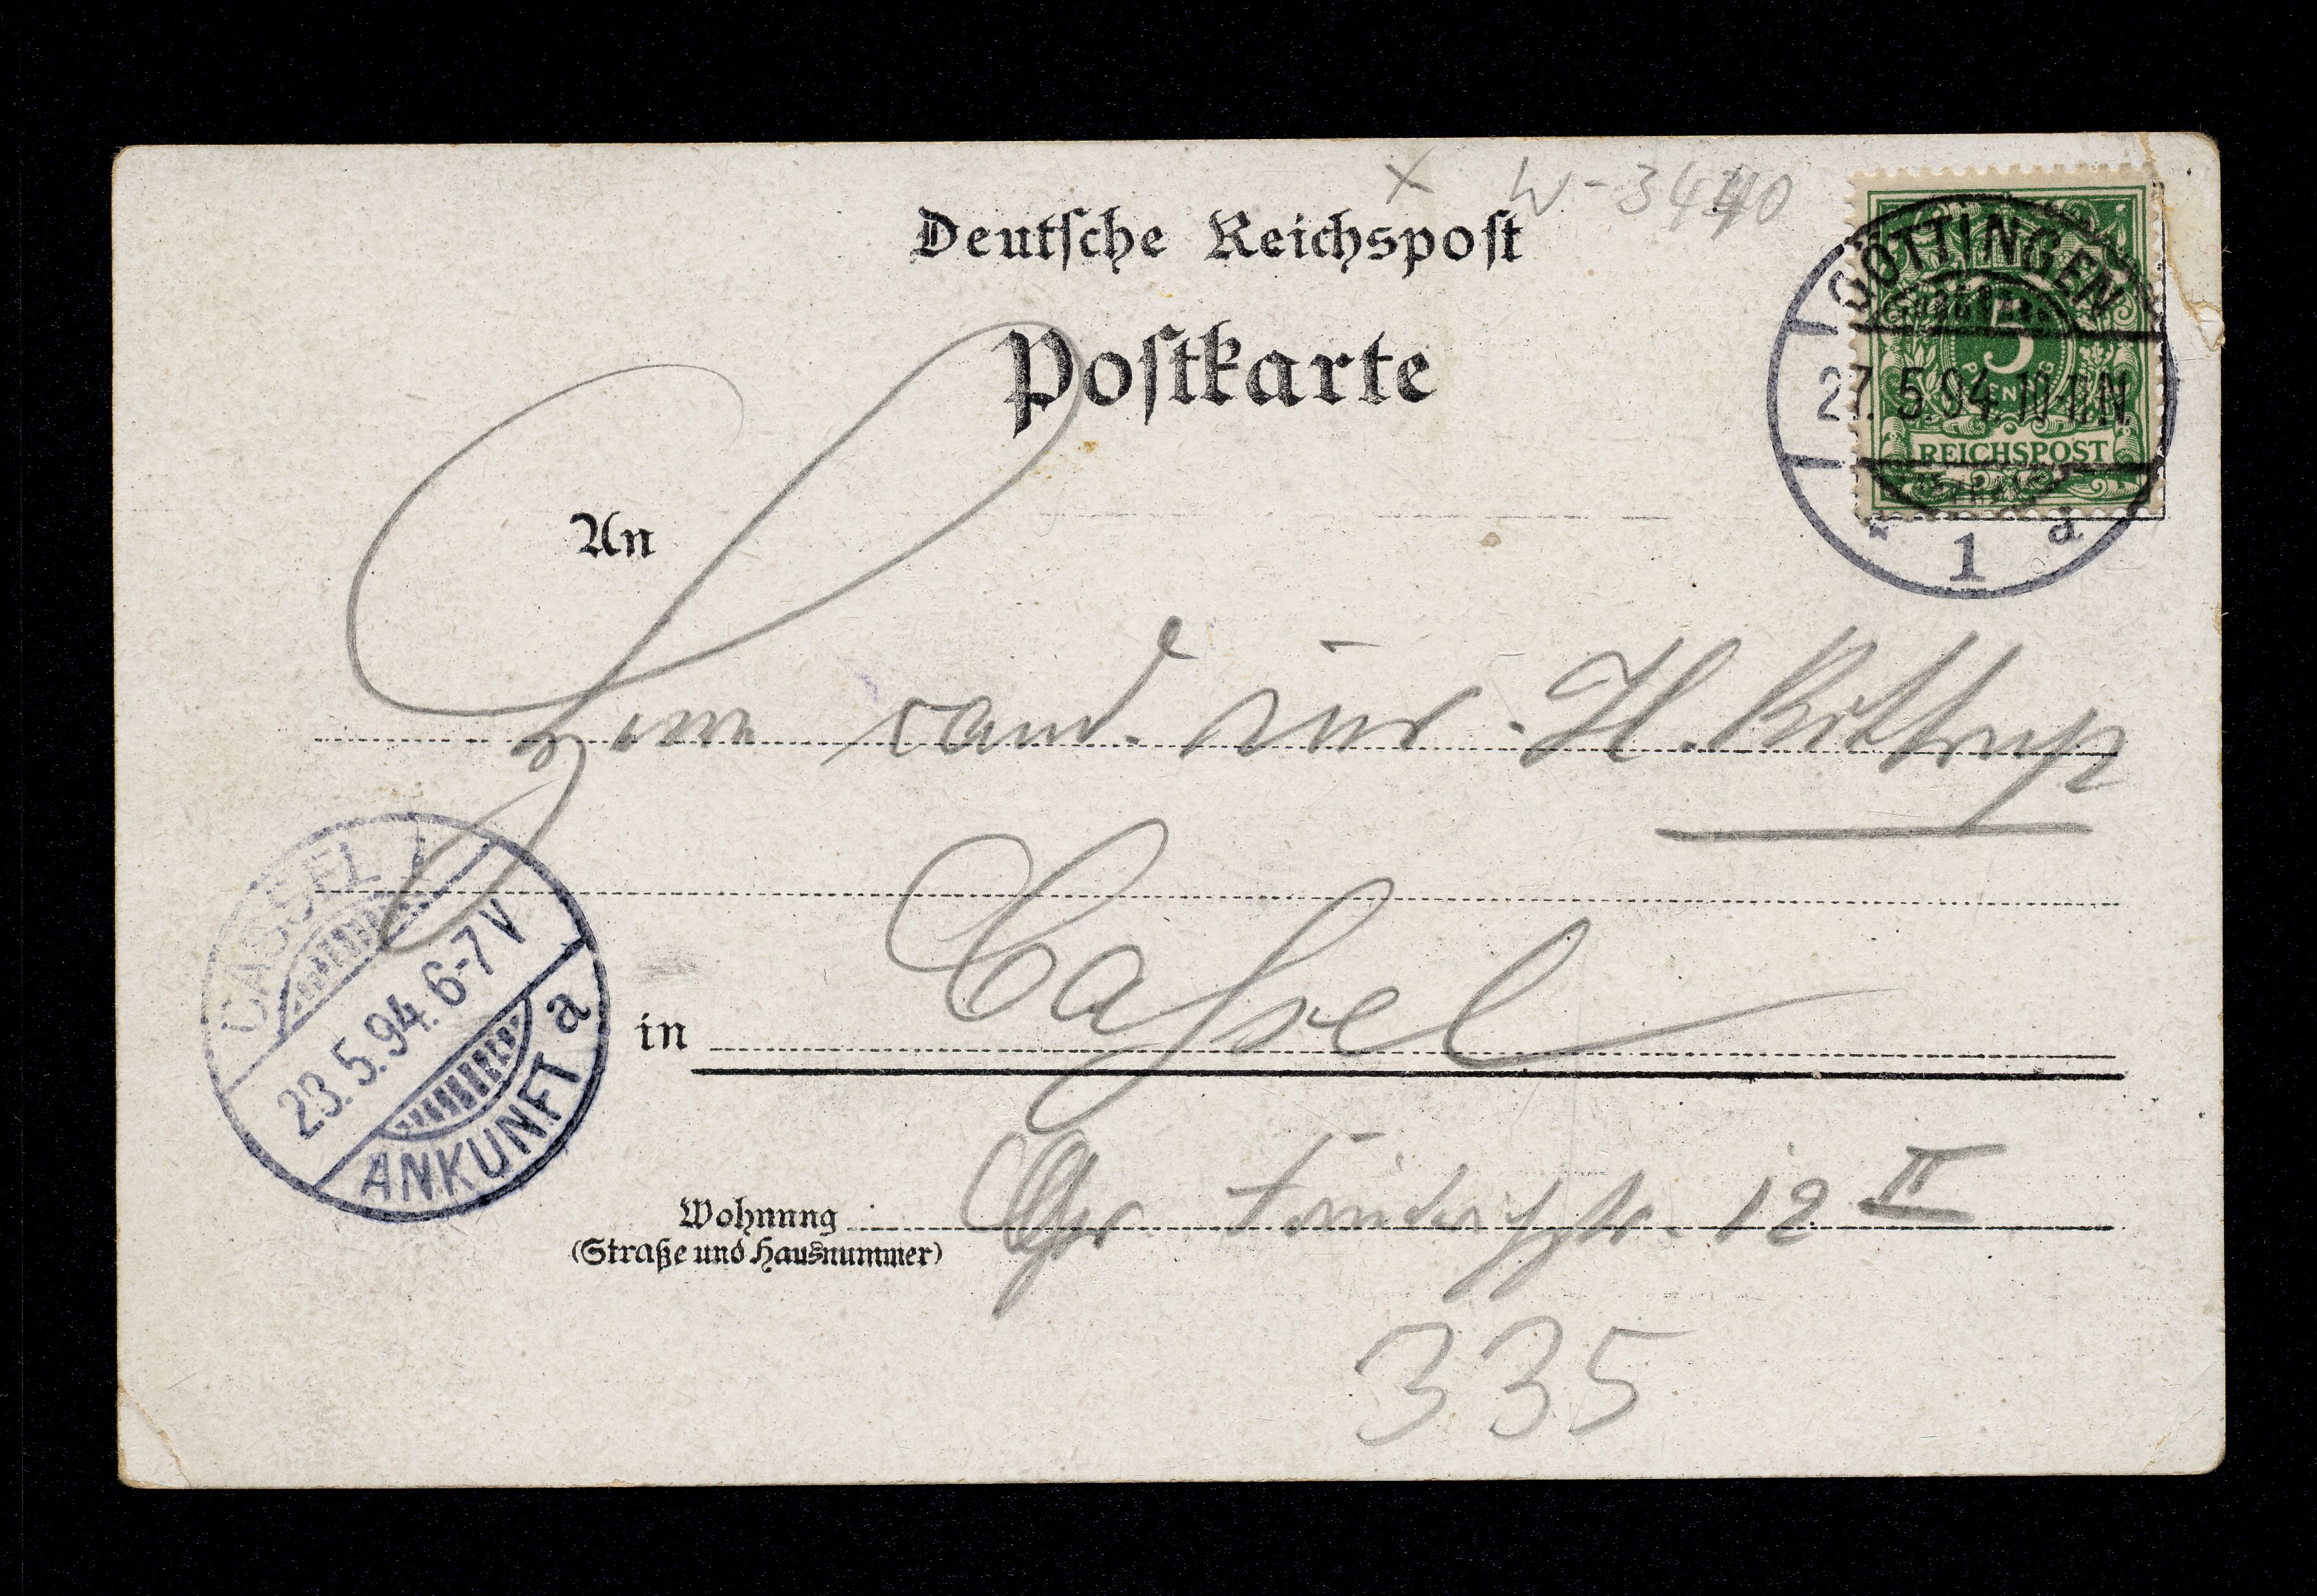 W-3440
Deutsche Reichspost
Postkarte
GÖTTINGEN
5
PFENNIG
27.5.94.10-11N
REICHSPOST
* 1 d
An
Herrn cand. iur. H. Bittrup
CASSEL 1
23.5.94.6-7V
ANKUNFT a
in Cassel
Wohnung
(Straße und Hausnummer)
Gr. 12 II
335